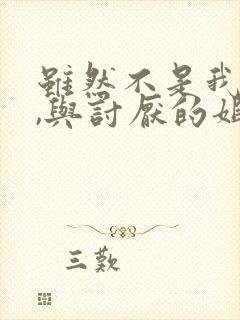 雖然不是我
,與討厭的姐
三歎